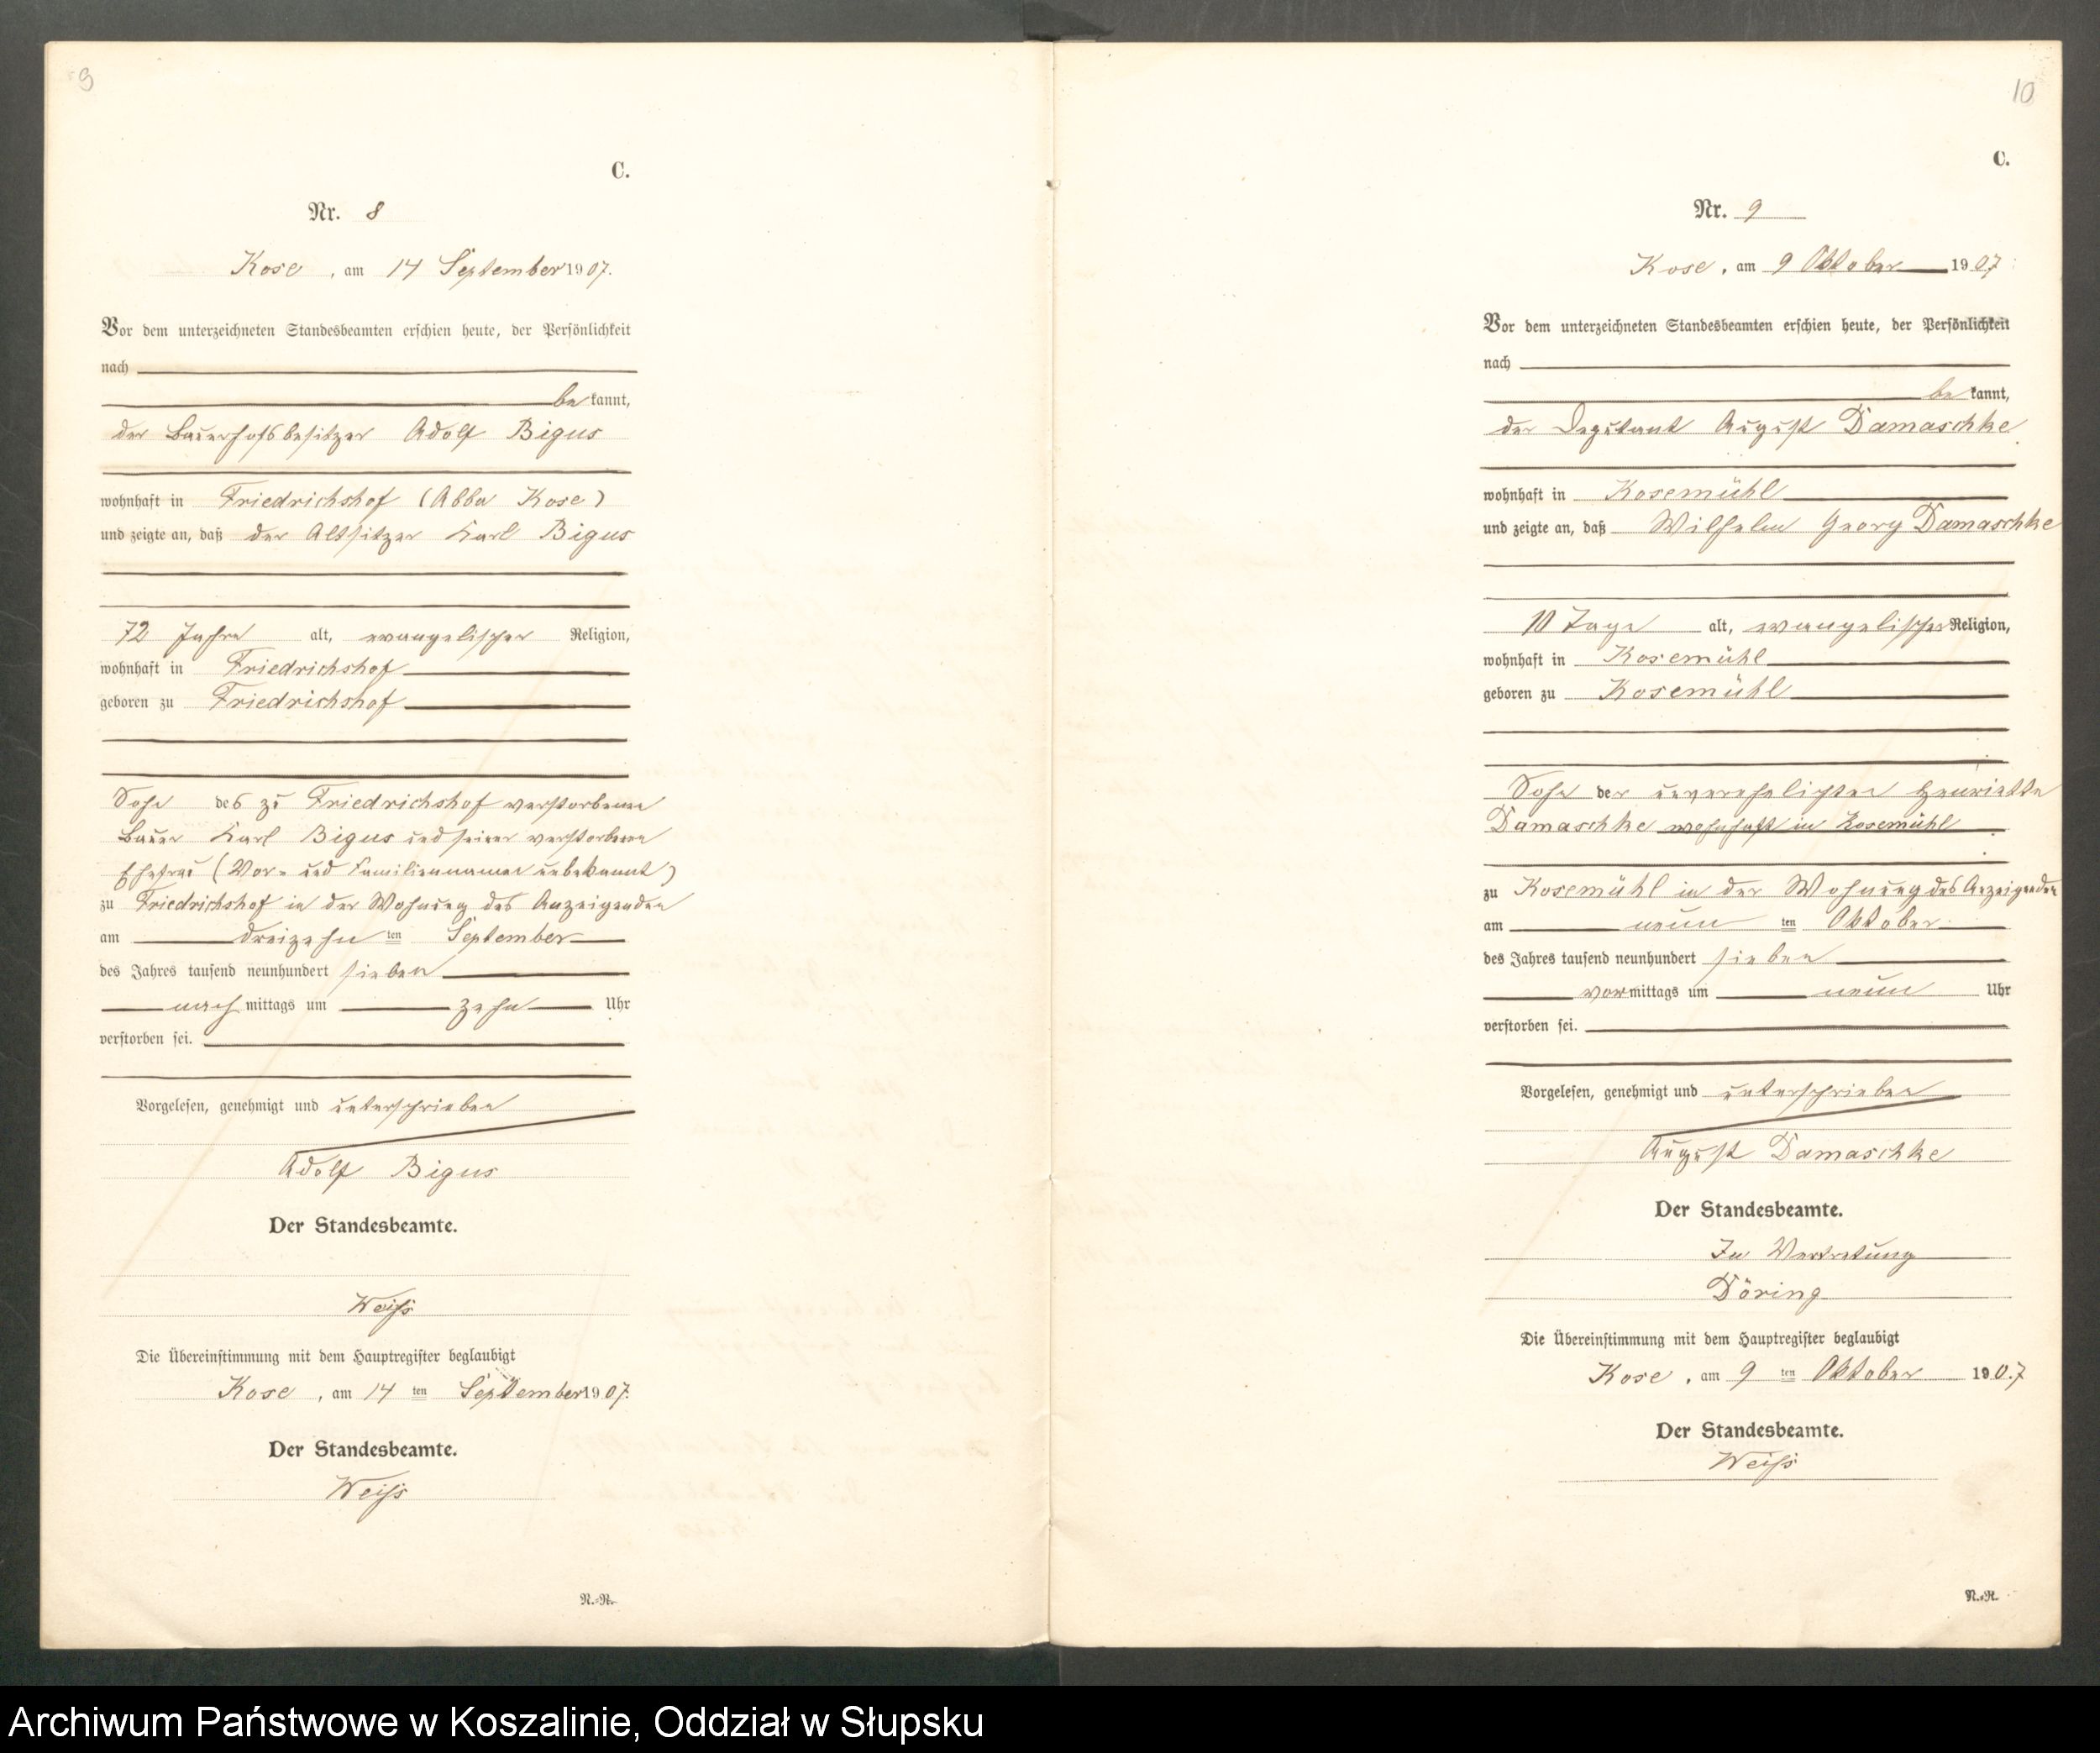 9
C.
Nr. 8
Kose, am 14 September 1907.
Vor dem unterzeichneten Standesbeamten erschien heute, der Persönlichkeit
nach
be kannt,
der Bauerhofsbesitzer Adolf Bigus
wohnhaft in Friedrichshof (Abba Kose)
und zeigte an, daß der Altsitzer Karl Bigus
72 Jahre alt, evangelischer Religion,
wohnhaft in Friedrichshof
geboren zu Friedrichshof
Sohn des zu Friedrichshof verstorbenen
Bauer Karl Bigus und seiner verstorbenen
Ehefrau (Vor- und Familiennamen unbekannt)
zu Friedrichshof in der Wohnung des Anzeigenden
am dreizehn ten September
des Jahres tausend neunhundert sieben
nach mittags um zehn Uhr
verstorben sei.
Vorgelesen, genehmigt und unterschrieben
Adolf Bigus
Der Standesbeamte.
Weiß
Die Übereinstimmung mit dem Hauptregister beglaubigt
Kose, am 14 ten September 1907.
Der Standesbeamte.
Weiß
N.-R.
10
C.
Nr. 9
Kose, am 9 Oktober 1907
Vor dem unterzeichneten Standesbeamten erschien heute, der Persönlichkeit
nach
be kannt,
der Deputant August Damaschke
wohnhaft in Kosemühl
und zeigte an, daß Wilhelm Georg Damaschke
10 Tage alt, evangelischer Religion,
wohnhaft in Kosemühl
geboren zu Kosemühl
Sohn der unverehelichten Henriette
Damaschke wohnhaft in Kosemühl
zu Kosemühl in der Wohnung des Anzeigenden
am neun ten Oktober
des Jahres tausend neunhundert sieben
vor mittags um neun Uhr
verstorben sei.
Vorgelesen, genehmigt und unterschrieben
August Damaschke
Der Standesbeamte.
In Vertretung
Döring
Die Übereinstimmung mit dem Hauptregister beglaubigt
Kose, am 9 ten Oktober 1907
Der Standesbeamte.
Weiß
N.-R.
Archiwum Państwowe w Koszalinie, Oddział w Słupsku